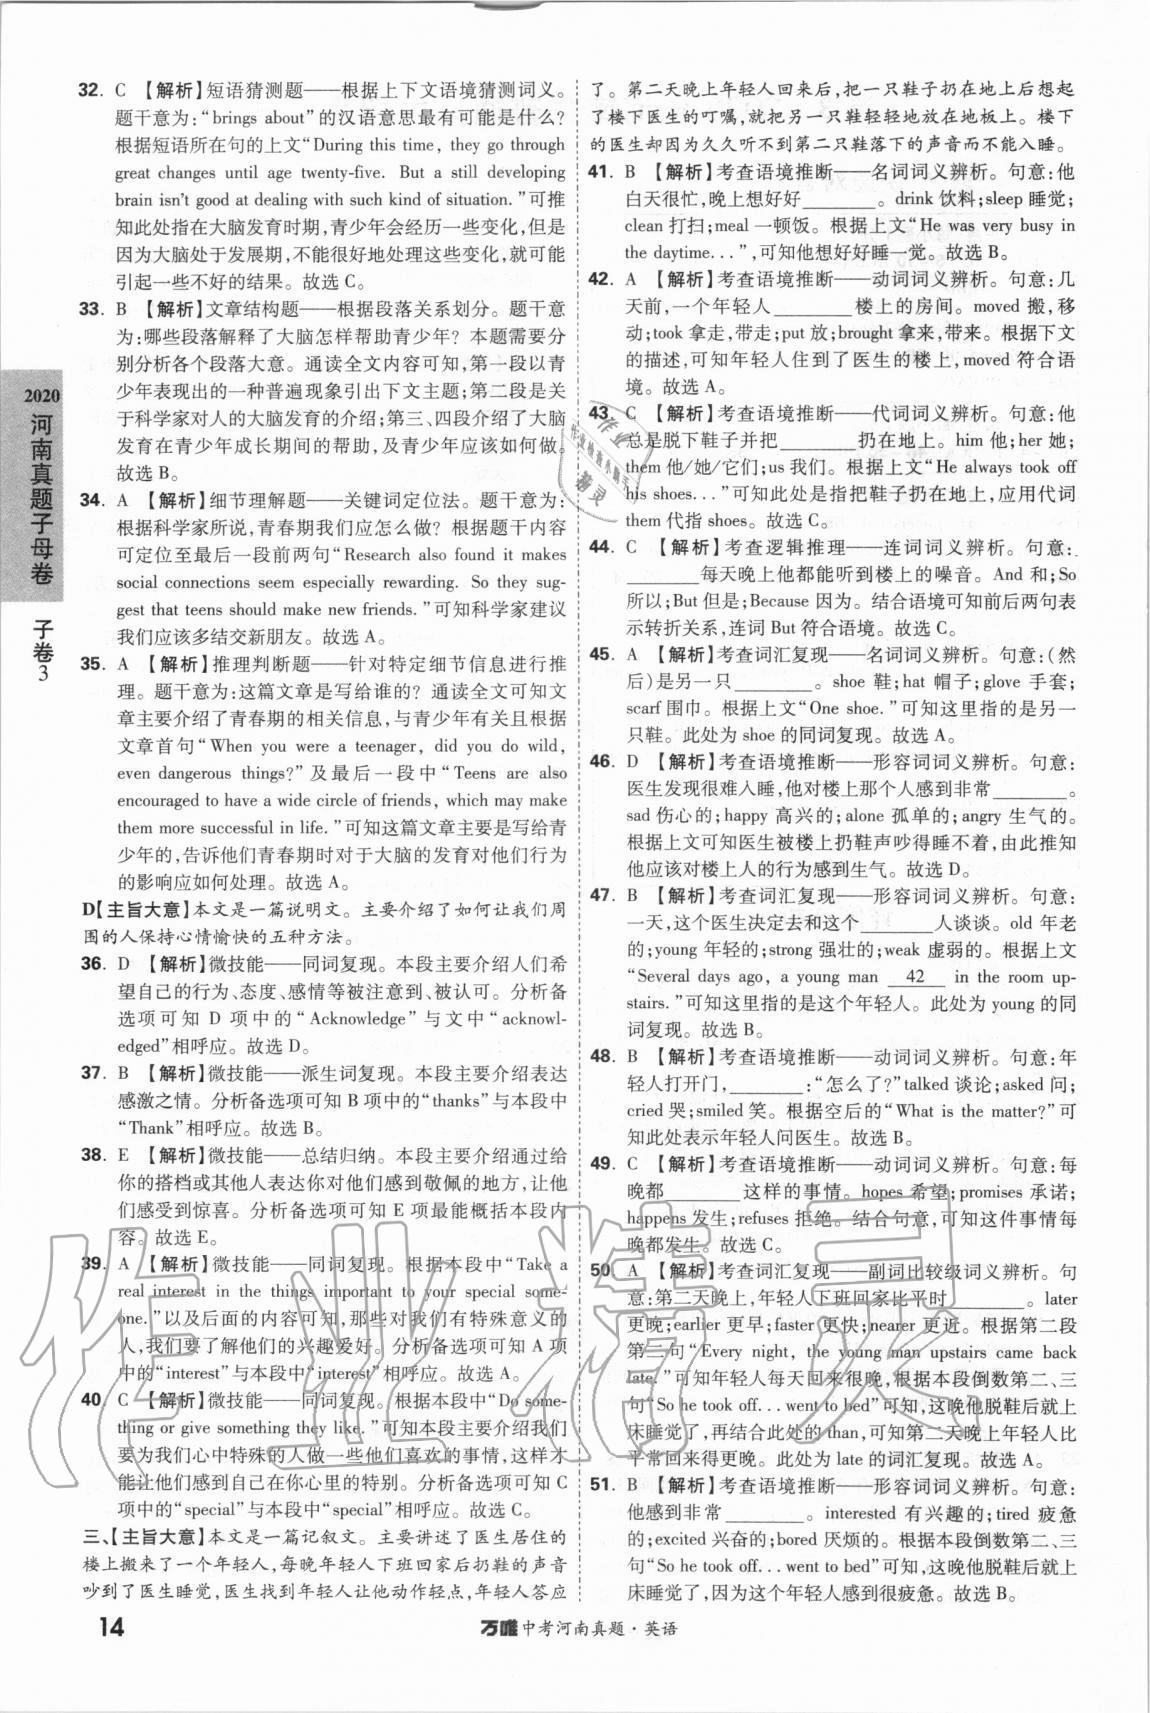 32. C 【解析】短语猜测题——根据上下文语境猜测词义。
题干意为:“brings about”的汉语意思最有可能是什么?
根据短语所在句的上文“During this time, they go through
great changes until age twenty-five. But a still developing
brain isn't good at dealing with such kind of situation.”可推
知此处指在大脑发育时期,青少年会经历一些变化,但是
因为大脑处于发展期,不能很好地处理这些变化,就可能
引起一些不好的结果。故选 C。
33. B 【解析】文章结构题——根据段落关系划分。题干意
为:哪些段落解释了大脑怎样帮助青少年? 本题需要分
别分析各个段落大意。通读全文内容可知,第一段以青
少年表现出的一种普遍现象引出下文主题;第二段是关
于科学家对人的大脑发育的介绍;第三、四段介绍了大脑
发育在青少年成长期间的帮助,及青少年应该如何做。
故选 B。
34. A 【解析】细节理解题——关键词定位法。题干意为:
根据科学家所说,青春期我们应怎么做? 根据题干内容
可定位至最后一段前两句“Research also found it makes
social connections seem especially rewarding. So they sug-
gest that teens should make new friends.”可知科学家建议
我们应该多结交新朋友。故选 A。
35. A 【解析】推理判断题——针对特定细节信息进行推
理。题干意为:这篇文章是写给谁的? 通读全文可知文
章主要介绍了青春期的相关信息,与青少年有关且根据
文章首句“When you were a teenager, did you do wild,
even dangerous things?”及最后一段中“Teens are also
encouraged to have a wide circle of friends, which may make
them more successful in life.”可知这篇文章主要是写给青
少年的,告诉他们青春期时对于大脑的发育对他们行为
的影响应如何处理。故选 A。
D【主旨大意】本文是一篇说明文。主要介绍了如何让我们周
围的人保持心情愉快的五种方法。
36. D 【解析】微技能——同词复现。本段主要介绍人们希
望自己的行为、态度、感情等被注意到、被认可。分析备
选项可知 D 项中的“Acknowledge”与文中“acknowl-
edged”相呼应。故选 D。
37. B 【解析】微技能——派生词复现。本段主要介绍表达
感激之情。分析备选项可知 B 项中的“thanks”与本段中
“Thank”相呼应。故选 B。
38. E 【解析】微技能——总结归纳。本段主要介绍通过给
你的搭档或其他人表达你对他们敬佩的地方,让他
们感受到惊喜。分析备选项可知 E 项最能概括本段内
容。故选 E。
39. A 【解析】微技能——同词复现。根据本段中“Take a
real interest in the things important to your special some-
one.”以及后面的内容可知,那些对我们有特殊意义的
人,我们要了解他们的兴趣爱好。分析备选项可知 A 项
中的“interest”与本段中“interest”相呼应。故选 A。
40. C 【解析】微技能——同词复现。根据本段中“Do some-
thing or give something they like.”可知本段主要介绍我们
要为我们心中特殊的人做一些他们喜欢的事情,这样才
能让他们感到自己在你心里的特别。分析备选项可知 C
项中的“special”与本段中“special”相呼应。故选 C。
三、【主旨大意】本文是一篇记叙文。主要讲述了医生居住的
楼上搬来了一个年轻人,每晚年轻人下班回家后扔鞋的声音
吵到了医生睡觉,医生找到年轻人让他动作轻点,年轻人答应
了。第二天晚上年轻人回来后,把一只鞋子扔在地上后想起
了楼下医生的叮嘱,就把另一只鞋轻轻地放在地板上。楼下
的医生却因为久久听不到第二只鞋落下的声音而不能入睡。
41. B 【解析】考查语境推断——名词词义辨析。句意:他
白天很忙,晚上想好好________。drink 饮料;sleep 睡觉;
clean 打扫;meal 一顿饭。根据上文“He was very busy in
the daytime...”,可知他想好好睡一觉。故选 B。
42. A 【解析】考查语境推断——动词词义辨析。句意:几
天前,一个年轻人________楼上的房间。moved 搬,移
动;took 拿走,带走;put 放;brought 拿来,带来。根据下文
的描述,可知年轻人住到了医生的楼上,moved 符合语
境。故选 A。
43. C 【解析】考查语境推断——代词词义辨析。句意:他
总是脱下鞋子并把________扔在地上。him 他;her 她;
them 他/她/它们;us 我们。根据上文“He always took off
his shoes...”可知此处指把鞋子扔在地上,应用代词
them 代指 shoes。故选 C。
44. C 【解析】考查逻辑推理——连词词义辨析。句意:
________每天晚上他都能听到楼上的噪音。And 和;So
所以;But 但是;Because 因为。结合语境可知前后两句表
示转折关系,连词 But 符合语境。故选 C。
45. A 【解析】考查词汇复现——名词词义辨析。句意:(然
后)是另一只________。shoe 鞋;hat 帽子;glove 手套;
scarf 围巾。根据上文“One shoe.”可知这里指的是另一
只鞋。此处为 shoe 的同词复现。故选 A。
46. D 【解析】考查语境推断——形容词词义辨析。句意:
医生发现很难入睡,他对楼上那个人感到非常________。
sad 伤心的;happy 高兴的;alone 孤单的;angry 生气的。
根据上文可知医生被楼上扔鞋声吵得睡不着,由此推知
他应该对楼上人的行为感到生气。故选 D。
47. B 【解析】考查词汇复现——形容词词义辨析。句意:
一天,这个医生决定去和这个________人谈谈。old 年老
的;young 年轻的;strong 强壮的;weak 虚弱的。根据上文
“Several days ago, a young man 42 in the room up-
stairs.”可知这里指的是这个年轻人。此处为 young 的同
词复现。故选 B。
48. B 【解析】考查语境推断——动词词义辨析。句意:年
轻人打开门,________:“怎么了?”talked 谈论;asked 问;
cried 哭;smiled 笑。根据空后的“What is the matter?”可
知此处表示年轻人问医生。故选 B。
49. C 【解析】考查语境推断——动词词义辨析。句意:每
晚都________这样的事情。hopes 希望;promises 承诺;
happens 发生;refuses 拒绝。结合句意,可知这件事情每
晚都发生。故选 C。
50. A 【解析】考查词汇复现——副词比较级词义辨析。句
意:第二天晚上,年轻人下班回家比平时________。later
更晚;earlier 更早;faster 更快;nearer 更近。根据第二段
第三句“Every night, the young man upstairs came back
late.”可知年轻人每天回来很晚,根据本段倒数第二、三
句“So he took off... went to bed”可知,这晚他脱鞋后就上
床睡觉了,再结合上文的 than,可知第二天晚上年轻人比
平常回来得更晚。此处为 late 的词汇复现。故选 A。
51. B 【解析】考查语境推断——形容词词义辨析。句意:
他感到非常________。interested 有兴趣的;tired 疲惫
的;excited 兴奋的;bored 厌烦的。根据本段倒数第二、三
句“So he took off... went to bed”可知,这晚他脱鞋后就上
床睡觉了,因为这个年轻人感到很疲惫。故选 B。
2020
河南真题子母卷
子卷3
14
万唯中考河南真题·英语
作业精灵